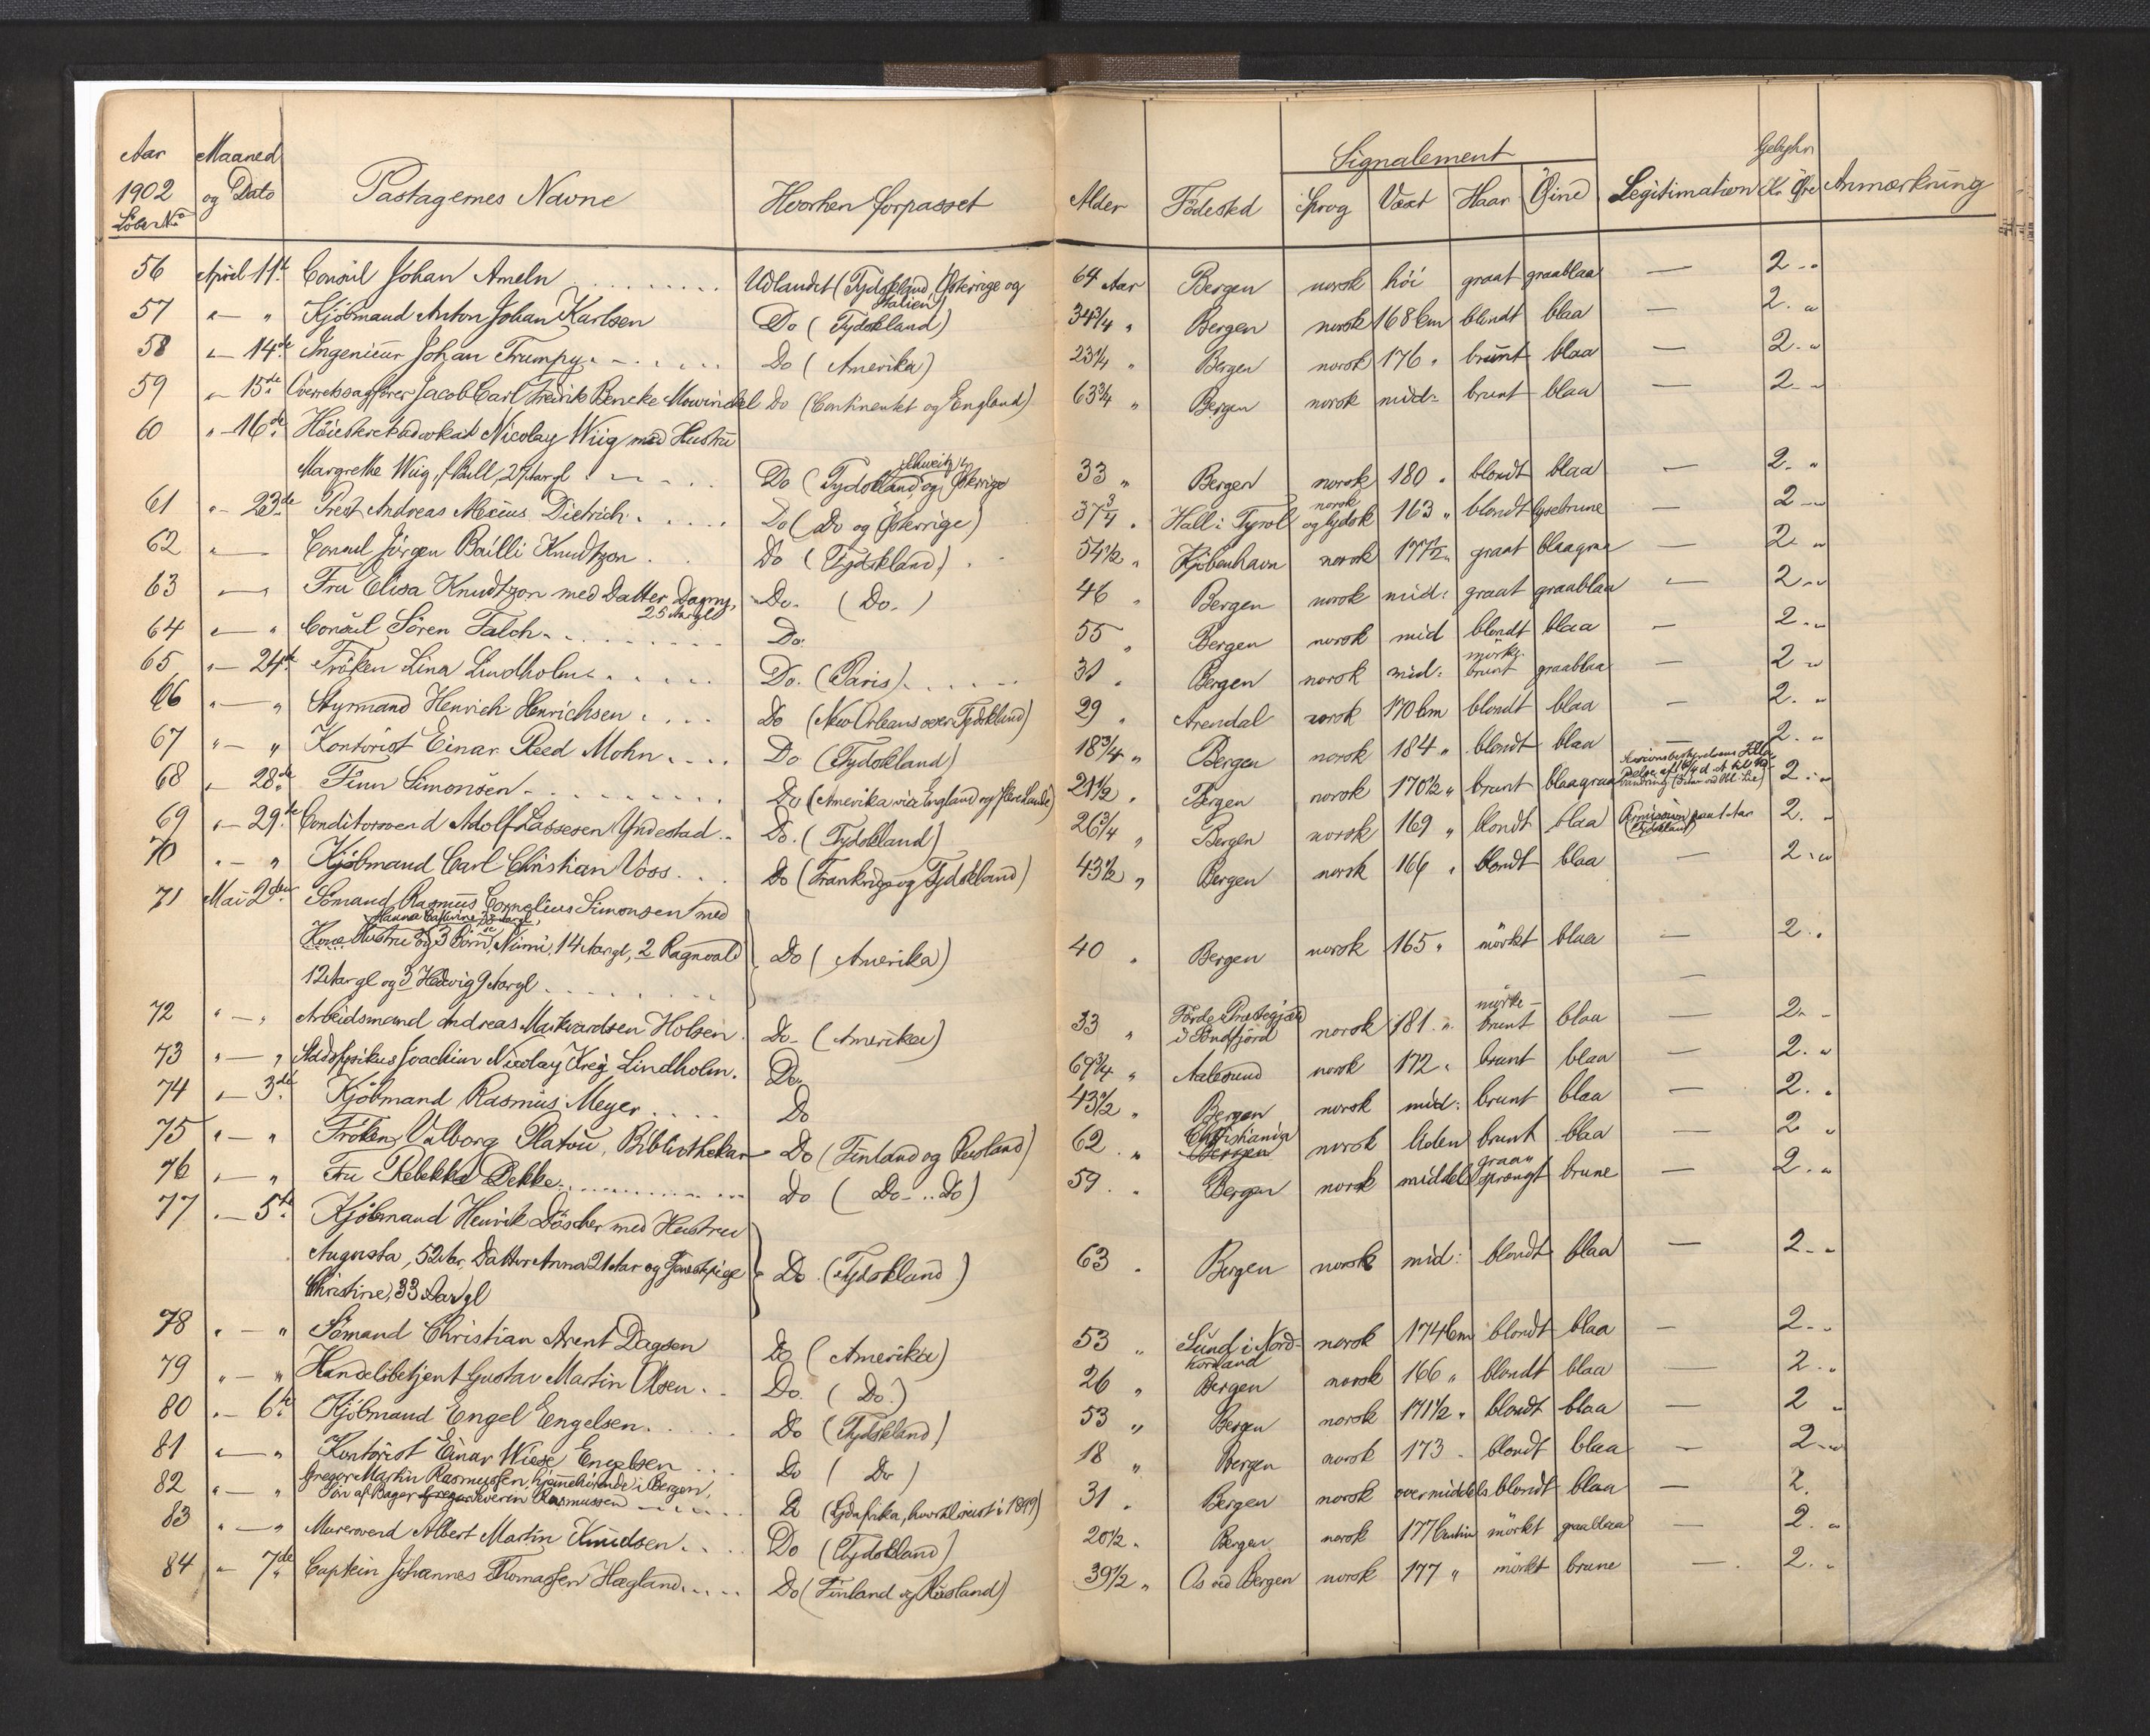 Aar Maaned
1902 og Dato Passagernes Navne Hvorhen forpasset Alder Födested Signalement Legitimation Gebyhr Anmærkning
Löbe No Sprog Vext Haar Øine Kr Øre
56 April 11te Consul Johan Ameln Udlandet (Tydskland, Østerrige og Italien) 64 Aar Bergen norsk höi graat graablaa — 2 - "
57 " — " Kjöbmand Anton Johan Karlsen Do (Tydskland) 34 3/4 " Bergen norsk 168 Cm blondt blaa — 2. "
58 " — 14de Ingenieur Johan Trumpy Do (Amerika) 23 1/4 " Bergen norsk 176 " brunt blaa — 2 - "
59 " — 15de Overretssagförer Jacob Carl Fredrik Bencke Mowinckel Do (Continentet og England) 63 3/4 " Bergen norsk mid: brunt blaa — 2 - "
60 " — 16de Höiesteretsadvokat Nicolay Wiig med Hustru
Margrethe Wiig, f. Bull, 27 Aar gl Do (Tydskland, Schweitz og Østerrige 33 " Bergen norsk 180 " blondt blaa — 2. "
61 " — 23de Prest Andreas Dietrich Do (Do og Østerrige) 37 3/4 " Hall i Tyrol norsk og tydsk 163 " blondt lysebrune — 2 - "
62 " — Consul Jörgen Bailli Knudtzon Do (Tydskland) 54 1/2 " Kjöbenhavn norsk 177 1/2 " graat blaagraa — 2 - "
63 " — Fru Elisa Knudtzon med Datter Dagny, Do. (Do.) 46 " Bergen norsk mid: graat graablaa — 2 - "
25 Aar gl
64 " — " Consul Sören Falch Do. 55 " Bergen norsk mid blondt blaa — 2 - "
65 " — 24de Fröken Lina Lindholm Do. (Paris) 31 " Bergen norsk mid: mörke brunt graablaa — 2 - "
66 " — " Styrmand Henrich Henrichsen Do (New Orleans over Tydskland) 29 " Arendal norsk 170 Cm blondt blaa — 2. "
67 " — " Kontorist Einar Reed Mohn Do (Tydskland) 18 3/4 " Bergen norsk 184 " blondt blaa — 2. "
68 " — 28de Finn Simonsen Do (Amerika via England og flere Lande) 21 1/2 " Bergen norsk 170 1/2 " brunt blaagraa 2 : "
69 " — 29de Conditorsvend Adolf Lassesen Yndestad Do. (Tydskland) 26 3/4 " Bergen norsk 169 " blondt blaa Permission paa 1 Aar (Tydskland) 2. "
70 " — " Kjöbmand Carl Christian Voss Do (Frankrige og Tydskland) 43 1/2 " Bergen norsk 166 " blondt blaa — 2 - "
71 Mai 2den Sömand Rasmus Cornelius Simonsen med
Hanna Cathrine 38 Aar gl,
Kone Hustru og 3 Börn, Mimi, 14 Aar gl, 2 Ragnvald Do (Amerika) 40 " Bergen norsk 165 " mörkt blaa — 2. "
12 Aar gl og 3 Hedvig 9 Aar gl —
72 " — " Arbeidsmand Andreas Markvardsen Holsen Do - (Amerika) 33 " Förde Præstegjæld i Söndfjord norsk 181 " mörke-brunt blaa — 2 - "
73 " — " Stadsfysikus Joachim Nicolay Krieg Lindholm. Do. 69 3/4 " Aalesund norsk 172 " brunt blaa — 2. "
74 " — 3de Kjöbmand Rasmus Meyer Do 43 1/2 " Bergen norsk mid: brunt blaa — 2. "
75 " — " Fröken Valborg Platou, Bibliothekar Do (Finland og Rusland) 62 " Christiania Bergen norsk liden brunt blaa — 2 "
76 " — " Fru Rebekka Dekke Do (Do - .. Do) 59 " Bergen norsk middels graasprængt brune — 2. "
77 " — 5te Kjöbmand Henrik Döscher med Hustru
Augusta, 52 Aar, Datter Anna 21 Aar og Tjenestepige Do (Tydskland) 63 " Bergen norsk mid: blondt blaa — 2 - "
Christine, 33 Aar gl
78 " — " Sömand Christian Arent Dagsen Do (Amerika) 53 " Sund i Nordhordland norsk 174 Cm blondt blaa — 2 - "
79 " — " Handelsbetjent Gustav Martin Olsen Do. (Do.) 26 " Bergen norsk 166 " blondt blaa — 2 . "
80 " — 6te Kjöbmand Engel Engelsen Do (Tydskland) 53 " Bergen norsk 171 1/2 " blondt blaa — 2 "
81 " — " Kontorist Einar Wiese Engelsen Do (Do) 18 " Bergen norsk 173 - blondt blaa — 2 - "
82 " — " Gregor Martin Rasmussen, hjemmehörende i Bergen,
Sön af Bager Gregor Severin Rasmussen Do (Sydafrika, hvorhen reist i 1899) 31 " Bergen norsk over middels blondt blaa — 2.
83 " — " Murersvend Albert Martin Knudsen Do (Tydskland) 20 1/2 " Bergen norsk 177 Centim mörkt graablaa — 2. "
84 " — 7de Captein Johannes Thomassen Hægland Do (Finland og Rusland) 39 1/2 " Os ved Bergen norsk 177 " mörkt brune — 2. "